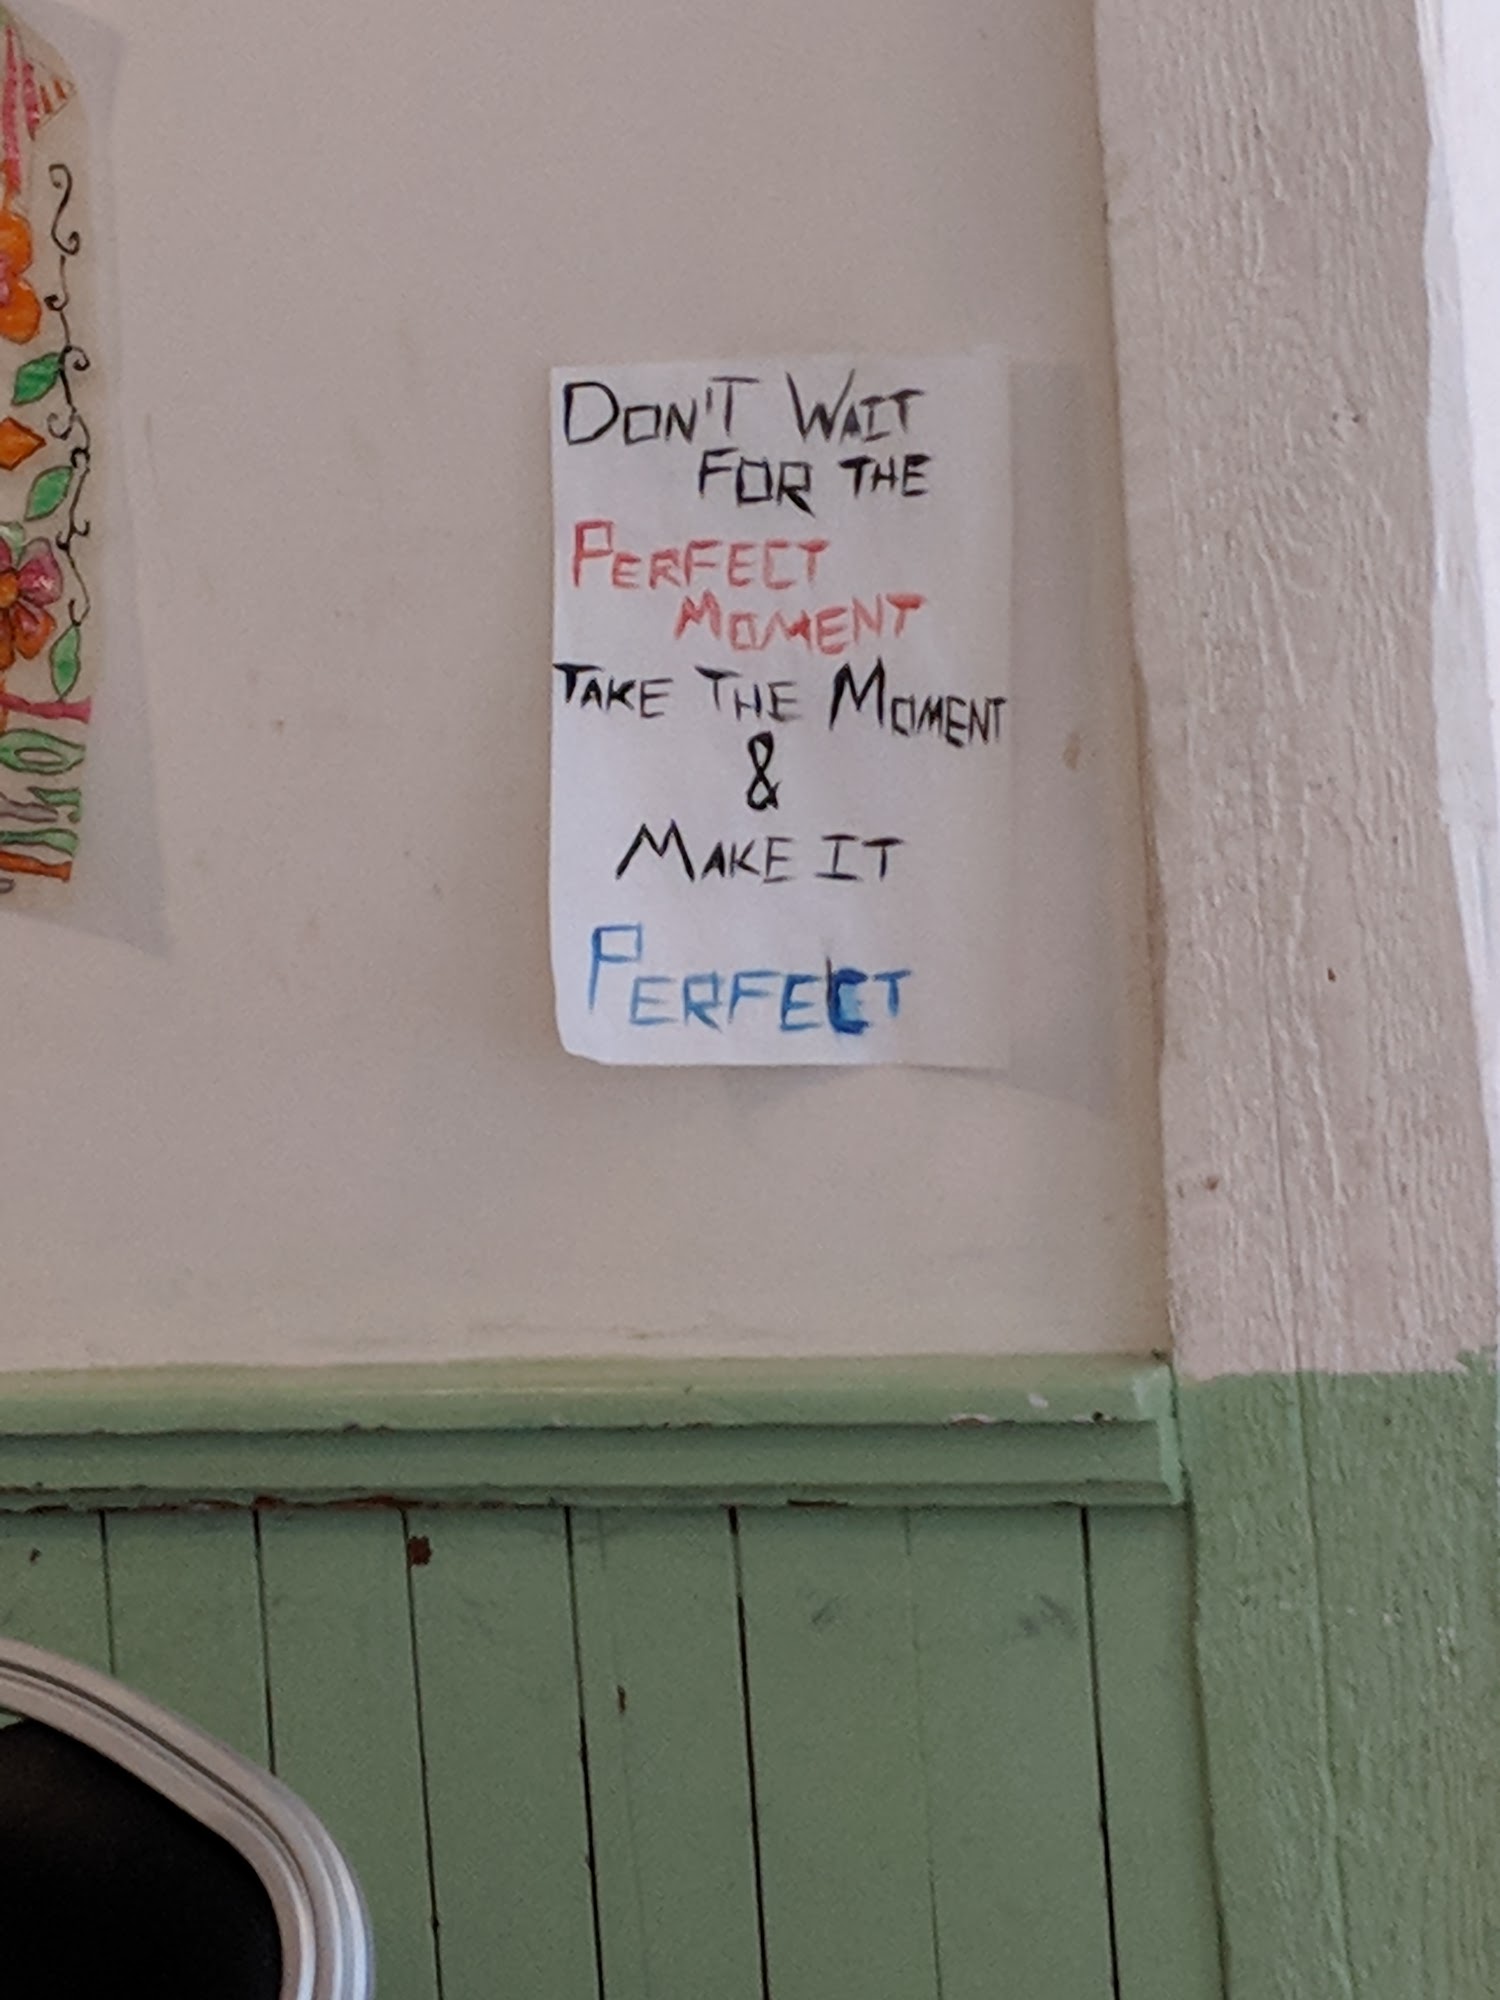 DON'T WAIT
FOR THE
PERFECT
MOMENT
TAKE THE MOMENT
&
MAKE IT
PERFECT